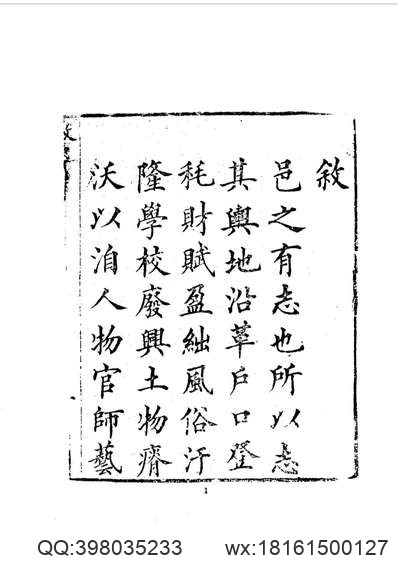 敘
邑之有志也所以志
其輿地沿革戶口登
耗財賦盈絀風俗汙
隆學校廢興土物瘠
沃以洎人物官師藝
1
QQ:398035233 wx:18161500127